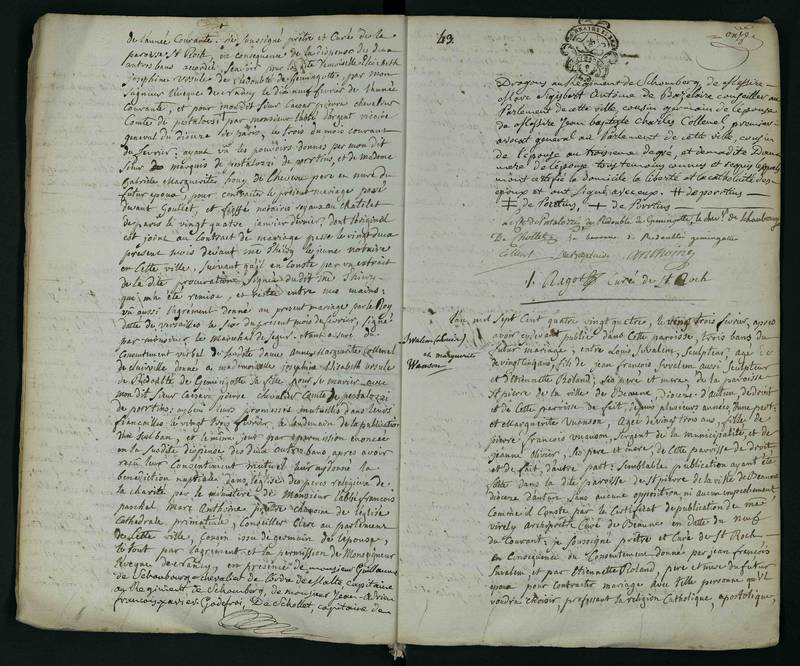 de l'année Courante. Je soussigné prêtre et Curé de la
paroisse St Roch, en consequence de la dispense des deux
autres bans accordée, sçavoir pour la ditte demoiselle Elisabeth
Josephine Ursule de Redoublé de Gemingotte, par mon
seigneur Eveque de nancy le dix neuf fevrier de l'année
Courante, et pour mondit sieur Caesar pierre chevalier
Comte de pestalozzi par monsieur l'abbé vicaire
general du diocese de paris, le trois du mois courant
du fevrier: ayant vû les pouvoirs donnés par mondit
Sieur marquis de pestalozzi de portrins, et de madame
gabrielle Marguerite pouy de Chevene pere et mere du
futur epoux, pour contracter le présent mariage passé
devant Goullet, et notaires royaux au Chatelet
de paris le vingt quatre janvier dernier, dont l'original
est joint au Contract de mariage passé le vingt deux
present mois devant me Thiéry le jeune notaire
en Cette ville, suivant qu'il en Conste par un extrait
de la dite procuration signée dudit me Thiéry
qui m'a été remise, et restée entre mes mains:
vû aussi l'agrément donné au présent mariage par le Roy
datté de versailles le six du present mois de fevrier, signé
par monsieur le Marechal de segur: étant assuré du
Consentement verbal de laditte dame anne Marguerite Collenel
de Clairville donné a mademoiselle josephine Elisabeth Ursule
de Redoublé de Gemingotte sa fille pour se marier avec
mondit sieur Caesar pierre chevalier Comte de pestalozzi
de portrins, ay leurs promesses mutuelles dans leurs
fiancailles le vingt trois fevrier, le lendemain de la publication
d'un seul ban, et le même jour par la permission enoncée
en la susdite dispense des deux autres bans après avoir
reçu leur Consentement mutuel leur ay donné la
benediction nuptiale dans l'eglise des peres religieux de
la charité par le ministere de Monsieur l'abbé francois
paschal Marc Anthoine prêtre chanoine de l'eglise
Cathedrale primatiale, Conseiller Clerc au parlement
de Cette ville, Cousin issu de germain de l'epouse,
le tout par l'agrement et la permission de Monseigneur
Eveque de nancy, en présence de monsieur Guillaume
de Schaubourg chevalier de l'ordre de Malte capitaine
au Regiment de Schomberg, de monsieur Jean adrien
francois xavier Godefroi, De Schollet, capitaine de
43.
onze
Dragons au Regiment de Schomberg, de Messire
Marc Sigisbert Antoine de Bazelaire conseiller au
Parlement de cette ville, cousin germain de l'epouse
de Messire Jean baptiste Charles Collenel premier
avocat general au Parlement de cette ville, cousin
de l'epouse au troisieme degré, et de madite Dame
mere de l'epouse tous temoins connus et requis lesquels
m'ont certifié le domicile la liberté et la catholicité des
epoux et ont signé avec eux. # de portrins
# de Portins, # de Portins
de Redoublé de Gemingotte, le chevr. de Schaubourg
De Chollet
Collenel Anthoine
J. Ragot Curé de St Roch
Suvalem (Louis)
et marguerite
Waasson
L'an mil sept cent quatre vingt quatre, le vingt trois fevrier, après
avoir cydevant publié dans Cette paroisse, trois bans du
futur mariage, entre Louis Suvalem, sculpteur, agé de
vingt cinq ans, fils de jean françois, Suvalem aussi sculpteur
et d'Etiennette Roland, ses pere et mere de la paroisse
St pierre de la ville de Beaune, diocese d'autun, de droit
et de Cette paroisse de fait, depuis plusieurs années d'une part:
et Marguerite Vuasson, agée de vingt trois ans, fille de
pierre françois vuasson, sergent de la municipalité, et de
jeanne olivier, ses pere et mere, de Cette paroisse de droit,
et de fait, d'autre part: semblable publication ayant été
faite dans la dite paroisse de St pierre de la ville de Beaune
diocese d'autun, sans aucune opposition ni aucun empechement
Comme il Conste par le Certificat de publication de me
virely archiprêtre Curé de Beaune en datte du neuf
du Courant: je soussigné prêtre et Curé de St Roch
en Consequence du Consentement donné par jean françois
Suvalem, et par Etiennette Roland, pere et mere du futur
epoux pour contracter mariage avec telle personne qu'il
voudra choisir, professant la religion Catholique, apostolique,